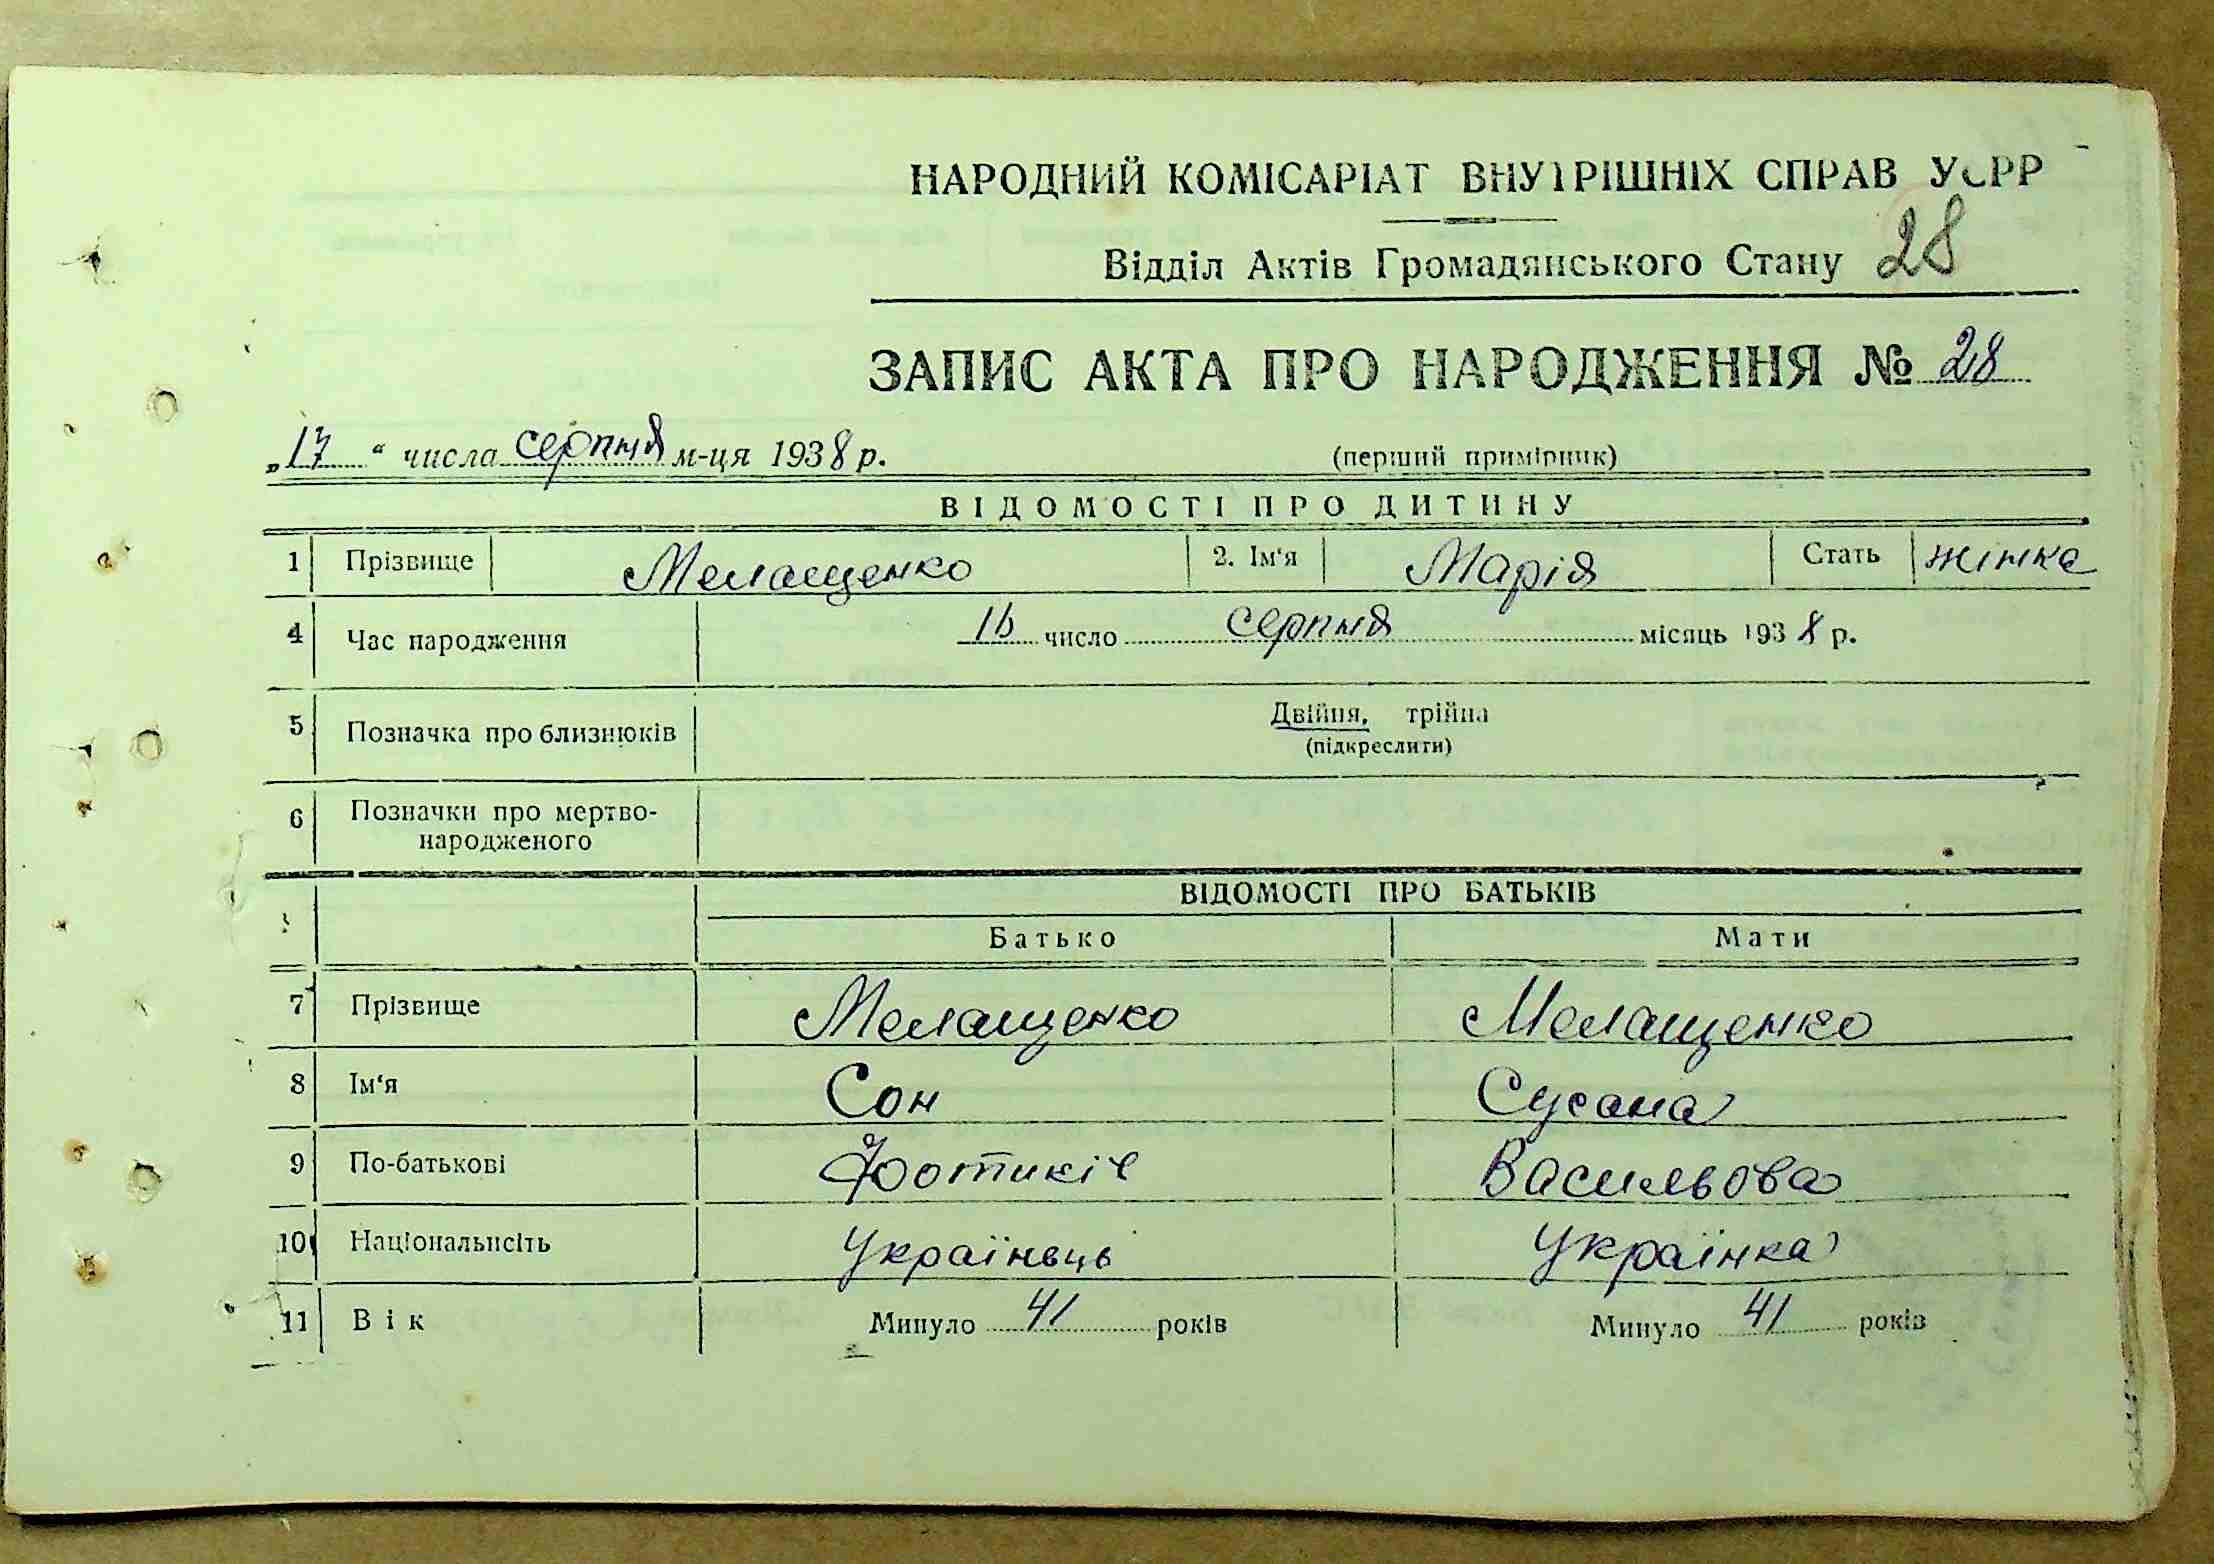 НАРОДНИЙ КОМІСАРІАТ ВНУТРІШНІХ СПРАВ УСРР
Відділ Актів Громадянського Стану 28
ЗАПИС АКТА ПРО НАРОДЖЕННЯ № 28
„17“ числа серпня м-ця 1938 р. (перший примірник)
ВІДОМОСТІ ПРО ДИТИНУ
1 Прізвище Мелащенко 2. Ім'я Марія Стать жінка
4 Час народження 16 число серпня місяць 1938 р.
5 Позначка про близнюків Двійня, трійна
(підкреслити)
6 Позначки про мертво-
народженого
ВІДОМОСТІ ПРО БАТЬКІВ
Батько Мати
7 Прізвище Мелащенко Мелащенко
8 Ім'я Сон Сусана
9 По-батькові Васильова
10 Національнсіть Українець Українка
11 Вік Минуло 41 років Минуло 41 років